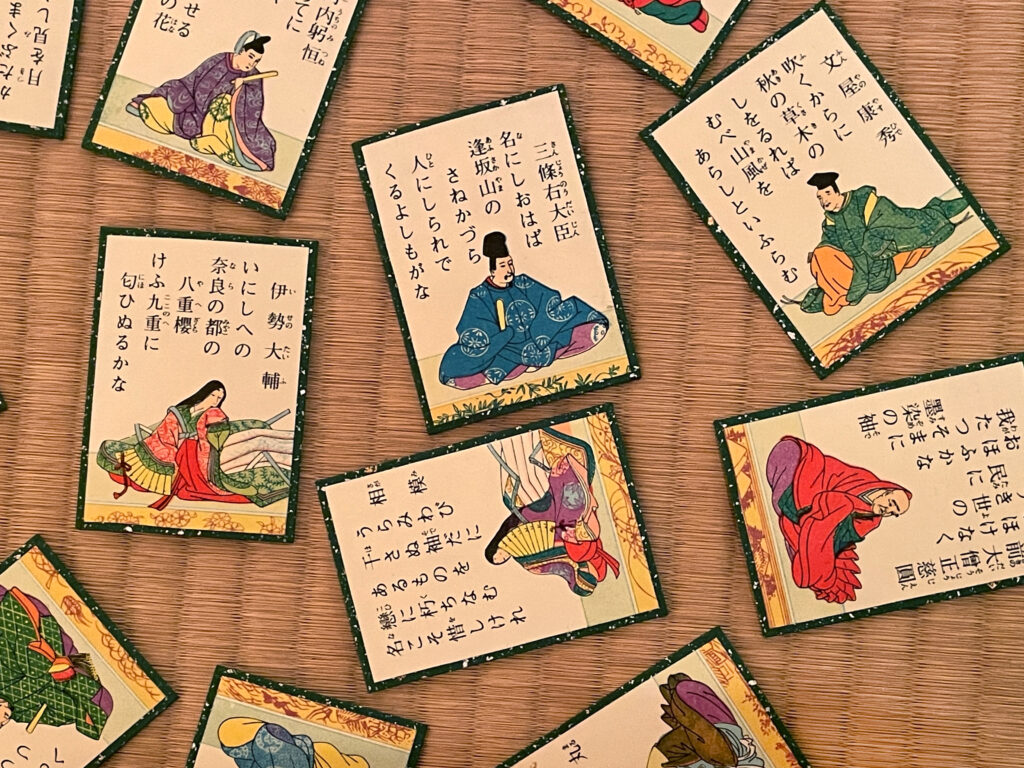 かたぶくま
月を見し
内躬恒
てに
せる
の花
三條右大臣
名にしおはば
逢坂山の
さねかづら
人にしられで
くるよしもがな
文屋康秀
吹くからに
秋の草木の
しをるれば
むべ山風を
あらしといふらむ
伊勢大輔
いにしへの
奈良の都の
八重櫻
けふ九重に
匂ひぬるかな
相模
うらみわび
干さぬ袖だに
あるものを
戀に朽ちなむ
名こそ惜しけれ
前大僧正慈圓
ほけなく
き世の
民に
おほふかな
我たつそまに
墨染の袖
丸